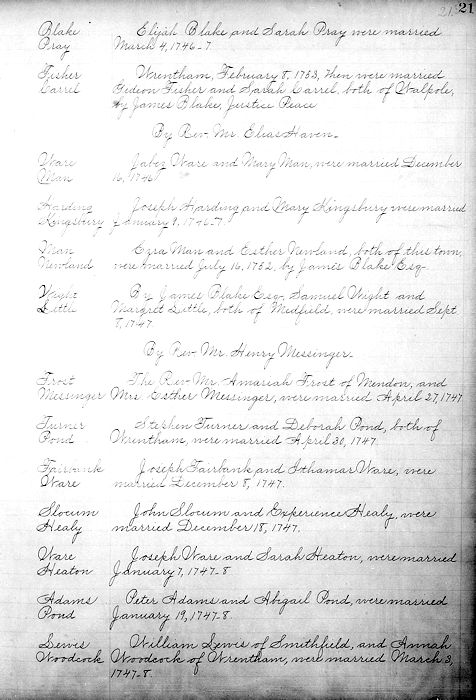 21 21
Blake Elijah Blake and Sarah Pray were married
Pray March 4, 1746-7
Fisher Wrentham, February 8, 1753, then were married
Carrel Gedeon Fisher and Sarah Carrel, both of Walpole,
by James Blake, Justice Peace
By Rev. Mr. Elias Haven.
Ware Jabez Ware and Mary Man, were married December
Man 16, 1746
Harding Joseph Harding and Mary Kingsbury were married
Kingsbury January 9, 1746-7.
Man Ezra Man and Esther Newland, both of this town,
Newland were married July 16, 1752, by James Blake Esq.
Wight By James Blake Esq., Samuel Wight and
Little Margret Little, both of Medfield, were married Sept.
8, 1747
By Rev. Mr. Henry Messinger.
Frost The Rev. Mr. Amariah Frost of Mendon, and
Messinger Mrs. Esther Messinger, were married April 27, 1747
Turner Stephen Turner and Deborah Pond, both of
Pond Wrentham, were married April 30, 1747.
Fairbank Joseph Fairbank and Ithamar Ware, were
Ware married December 8, 1747.
Slocum John Slocum and Experience Healy, were
Healy married December 18, 1747.
Ware Joseph Ware and Sarah Heaton, were married
Heaton January 7, 1747-8
Adams Peter Adams and Abigail Pond, were married
Pond January 19, 1747-8
Lewis William Lewis of Smithfield, and Annah
Woodcock Woodcock of Wrentham, were married March 3,
1747-8